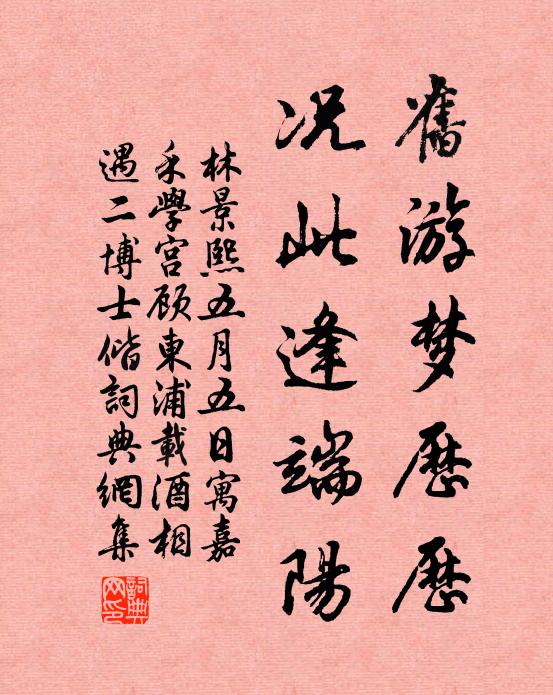 舊游梦歷歷
况此逢端陽
林景熙五月五日寓嘉
禾學宫顾東浦載酒相
遇二博士偕詞典網集
詞典网印